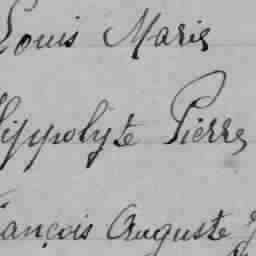 Louis Marie
Hippolyte Pierre
François Auguste